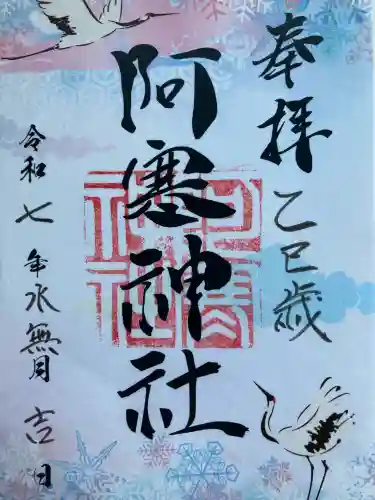 奉拝
乙巳歳
阿寒神社
令和七年水無月吉日